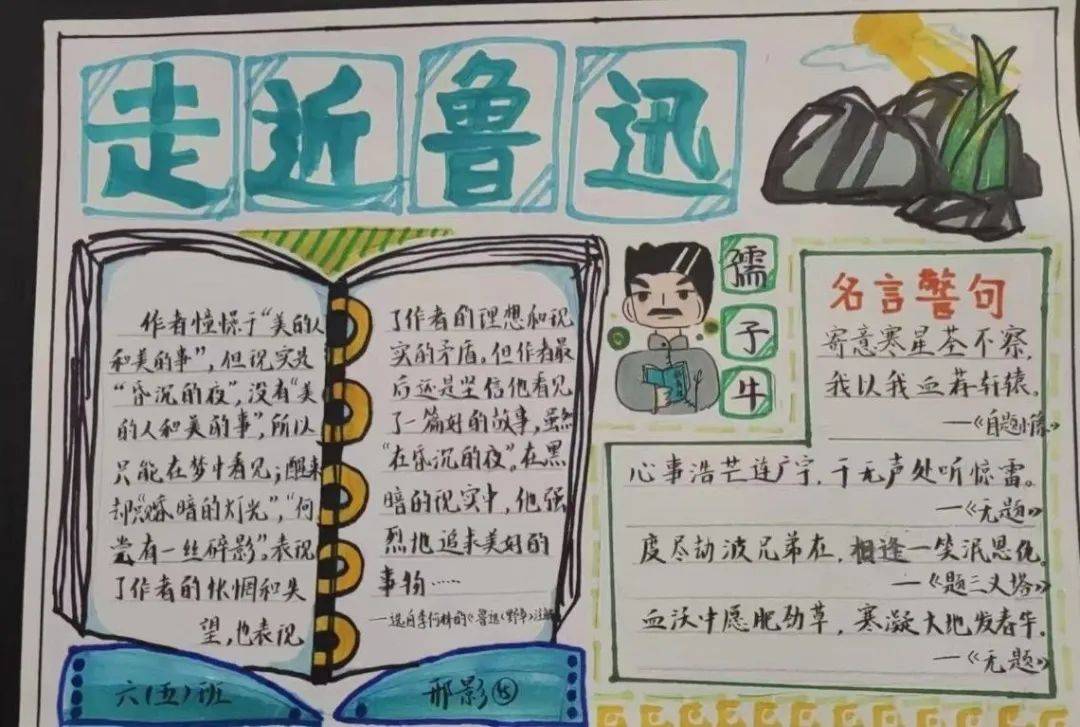 走近鲁迅
作者憧憬于“美的人
和美的事”，但现实是
“昏沉的夜”，没有“美
的人和美的事”，所以
只能在梦中看见；醒来
却“昏暗的灯光”，“何
尝有一丝碎影”，表现
了作者的怅惘和失
望，也表现
了作者的理想和现
实的矛盾，但作者最
后还是坚信他看见
了一篇好的故事，虽然
“在昏沉的夜”，在黑
暗的现实中，他强
烈地追求美好的
事物……
—选自李何林的《鲁迅《野草》注解
孺
子
牛
名言警句
寄意寒星荃不察，
我以我血荐轩辕。
—《自题小像》
心事浩茫连广宇，于无声处听惊雷。
—《无题》
度尽劫波兄弟在，相逢一笑泯恩仇。
—《题三义塔》
血沃中愿肥劲草，寒凝大地发春华。
—《无题》
六(五)班
邢影 45